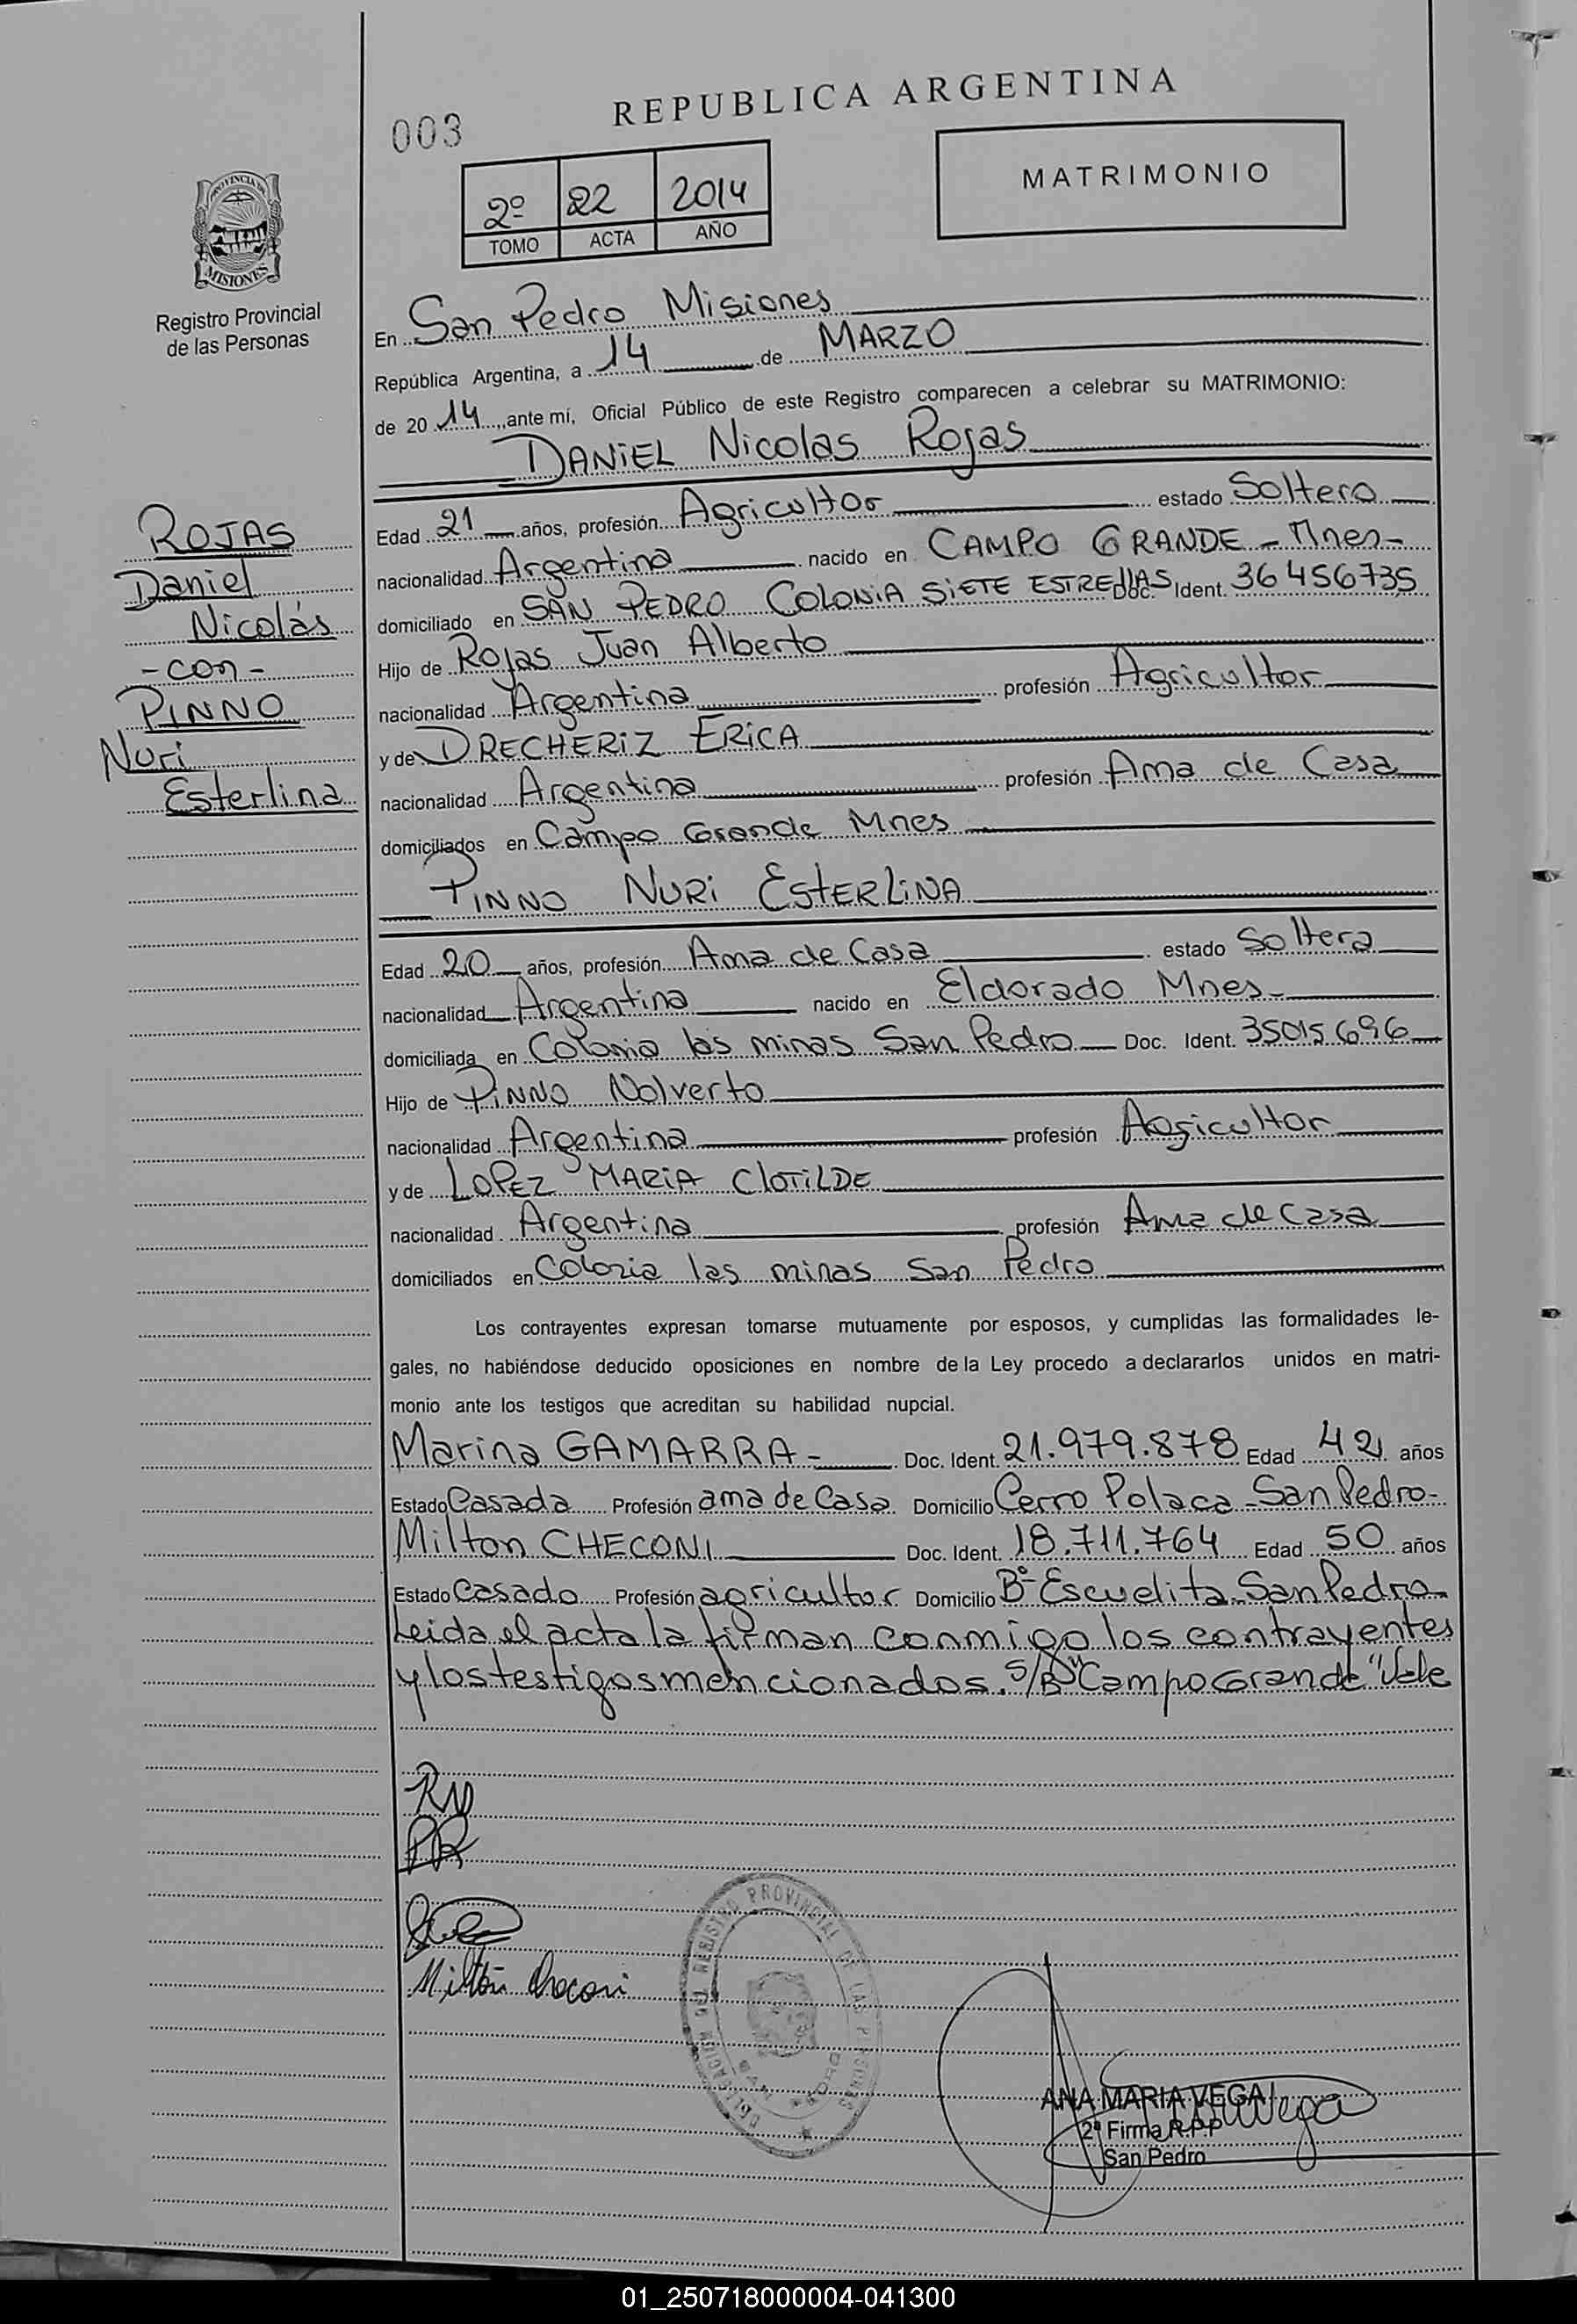 REPUBLICA ARGENTINA
003
2º 22 2014
TOMO ACTA AÑO
MATRIMONIO
PROVINCIA DE
MISIONES
Registro Provincial
de las Personas
En San Pedro Misiones
República Argentina, a 14 de MARZO
de 2014, ante mí, Oficial Público de este Registro comparecen a celebrar su MATRIMONIO:
DANIEL Nicolas Rojas
ROJAS
Daniel
Nicolás
-con-
PINNO
Nuri
Esterlina
Edad 21 años, profesión Agricultor estado Soltero
nacionalidad Argentina nacido en CAMPO GRANDE - Mnes-
domiciliado en SAN PEDRO COLONIA SIETE ESTRELLAS Doc. Ident. 36456735
Hijo de Rojas Juan Alberto
nacionalidad Argentina profesión Agricultor
y de DRECHERIZ ERICA
nacionalidad Argentina profesión Ama de Casa
domiciliados en Campo Grande Mnes
PINNO NURI ESTERLINA
Edad 20 años, profesión Ama de Casa estado Soltera
nacionalidad Argentina nacido en Eldorado Mnes-
domiciliada en Colonia las minas San Pedro Doc. Ident. 35015696
Hijo de PINNO Nolverto
nacionalidad Argentina profesión Agricultor
y de LOPEZ MARIA CLOTILDE
nacionalidad Argentina profesión Ama de Casa
domiciliados en Colonia las minas San Pedro
Los contrayentes expresan tomarse mutuamente por esposos, y cumplidas las formalidades le-
gales, no habiéndose deducido oposiciones en nombre de la Ley procedo a declararlos unidos en matri-
monio ante los testigos que acreditan su habilidad nupcial.
Marina GAMARRA - Doc. Ident. 21.979.878 Edad 42 años
Estado Casada Profesión ama de Casa Domicilio Cerro Polaca - San Pedro-
Milton CHECONI Doc. Ident. 18.711.764 Edad 50 años
Estado Casado Profesión agricultor Domicilio Bº Escuelita - San Pedro
Leida el acta la firman conmigo los contrayentes
y los testigos mencionados. S/B "Campo Grande" Vale
Milton Checoni
DELEGACION DEL REGISTRO PROVINCIAL DE LAS PERSONAS
SAN PEDRO
ANA MARIA VEGA
2ª Firma R.P.P
San Pedro
01_250718000004-041300